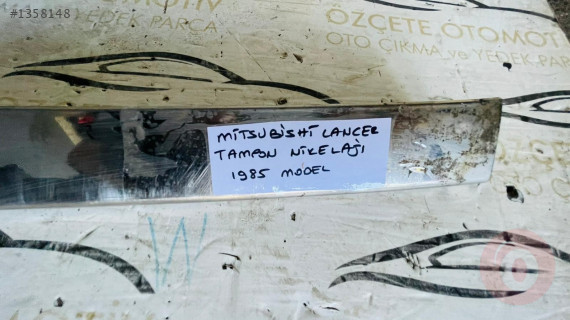 #1358148
OTİV
YEDEK PARÇA
ÖZÇETE OTOMOTİ
OTO ÇIKMA ve YEDEK PAR
MİTSUBİSHİ LANCER
TAMPON NİKELAJI
1985 MODEL
W